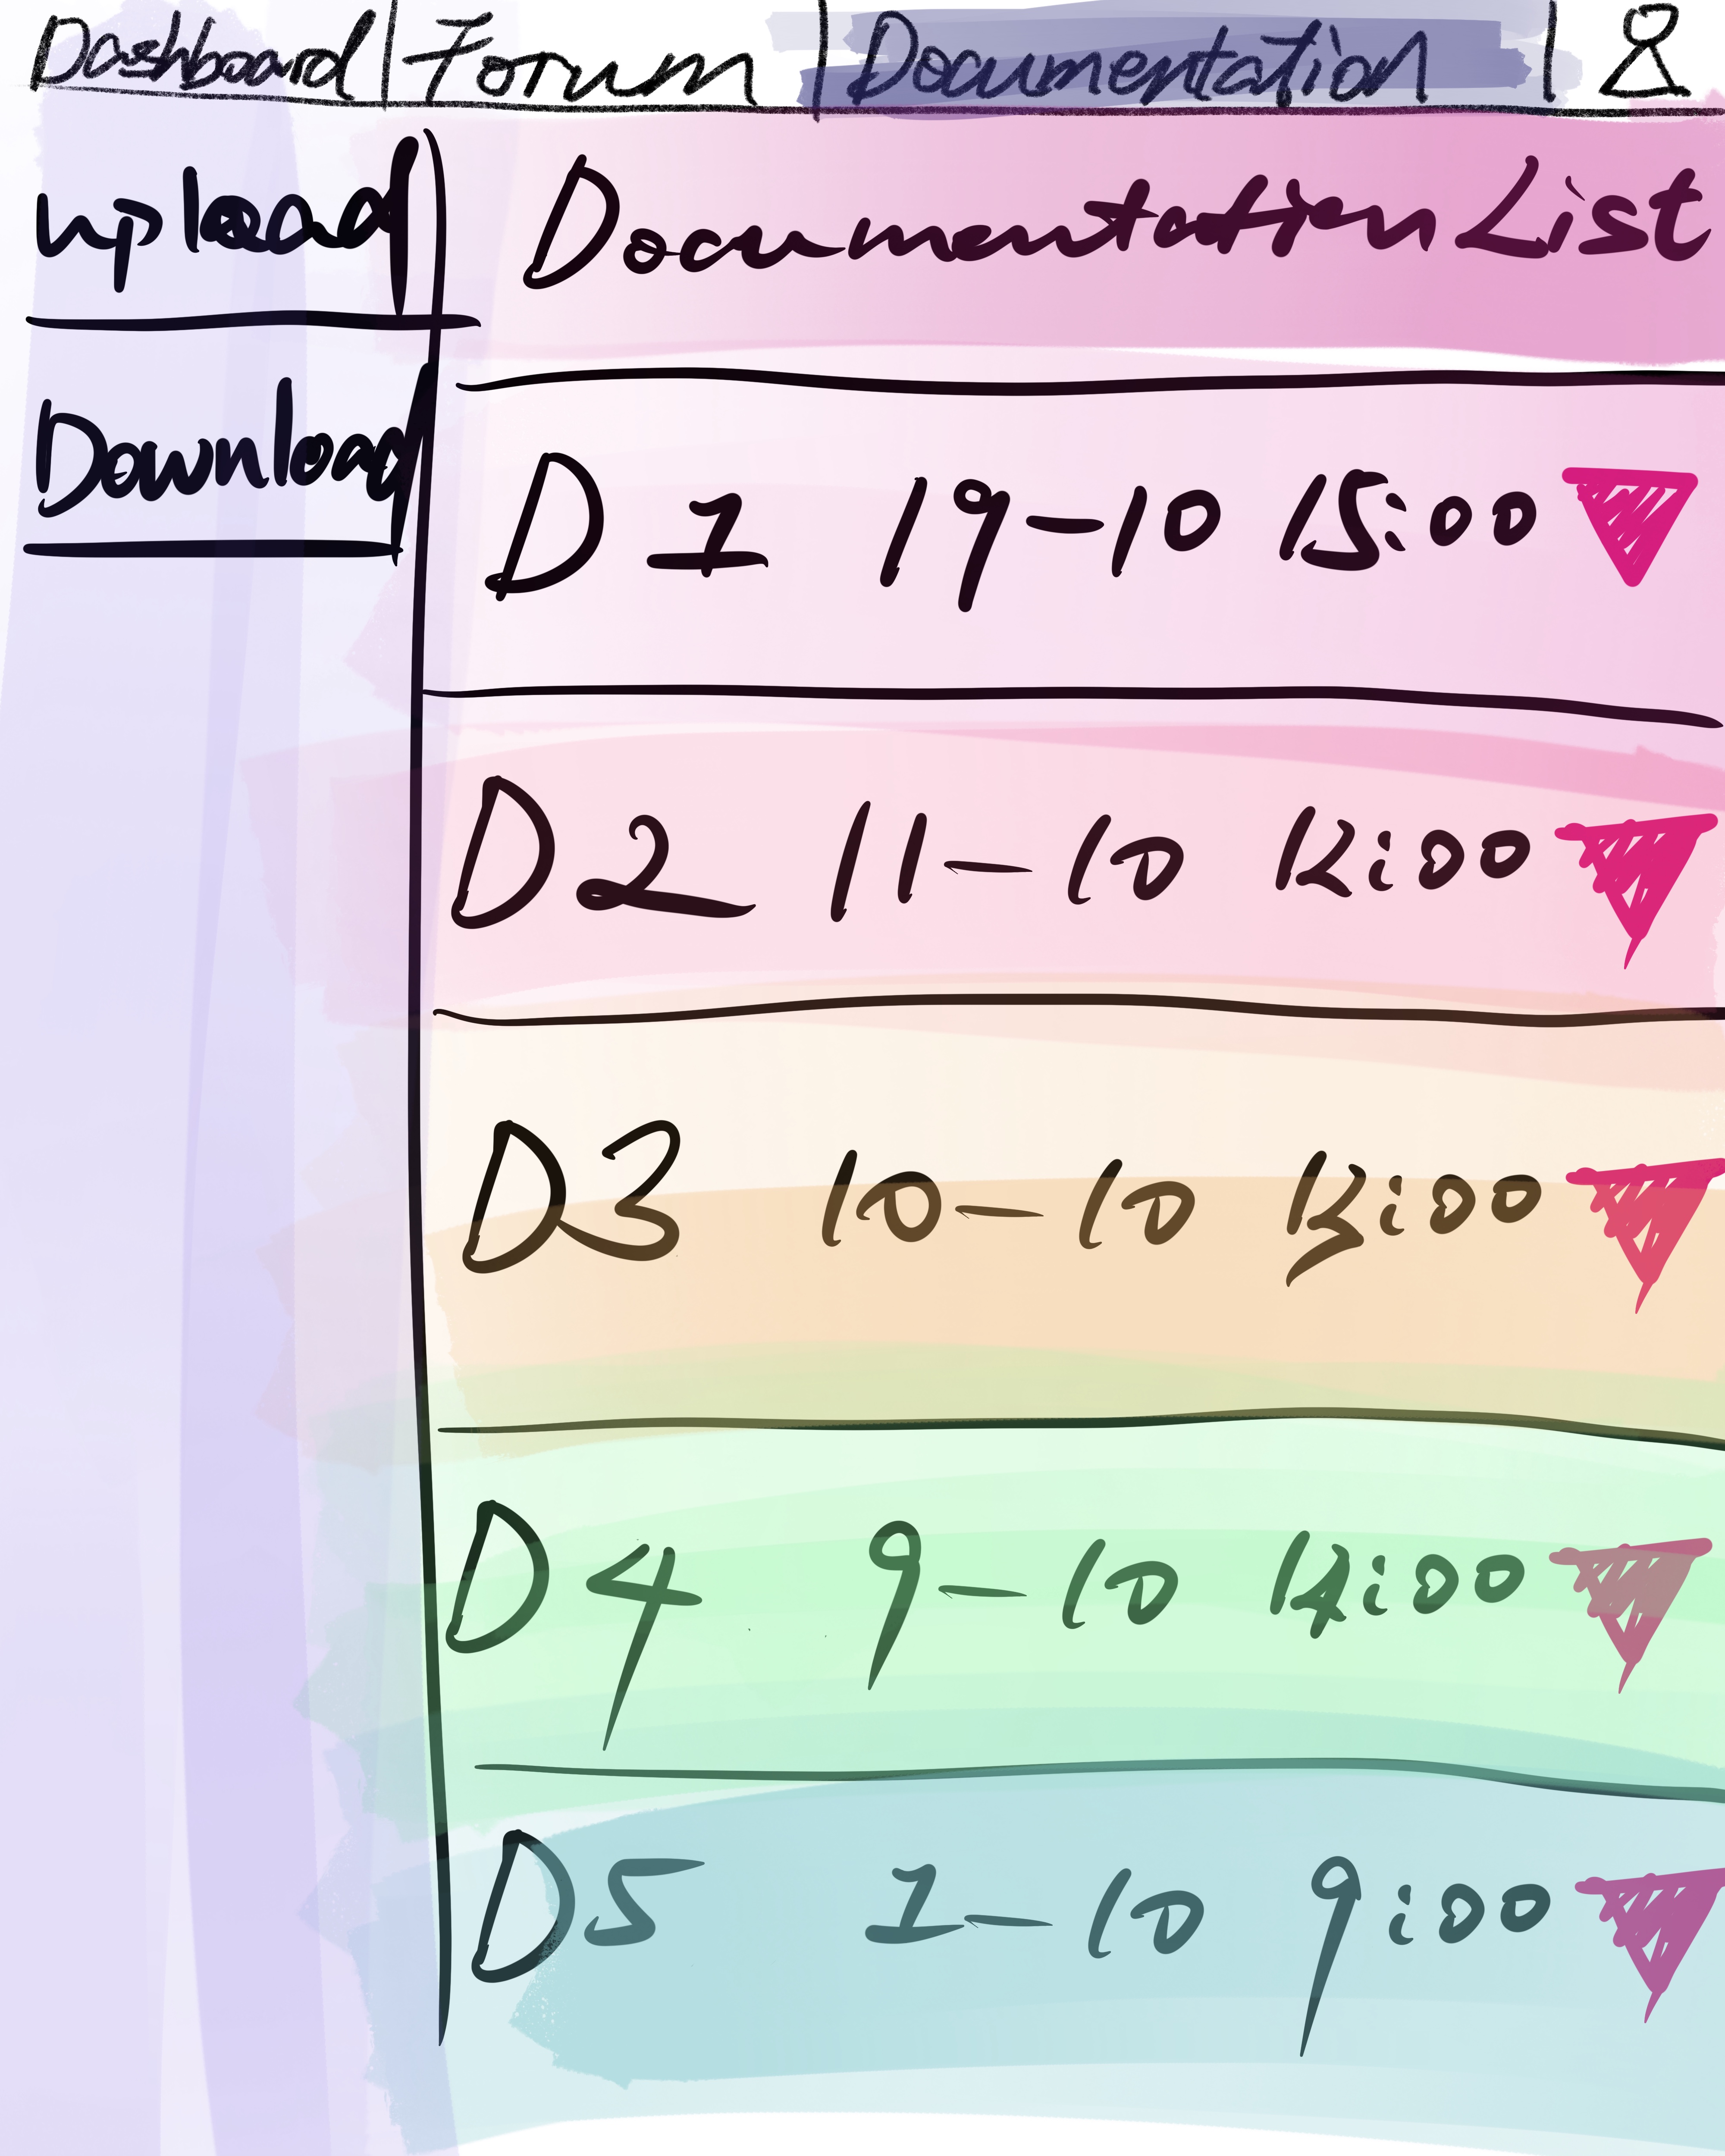 Dashboard | Forum | Documentation |
upload
Download
Documentation List
D 1 19-10 15:00
D 2 11-10 12:00
D3 10-10 13:00
D 4 9-10 14:00
D5 1-10 9:00